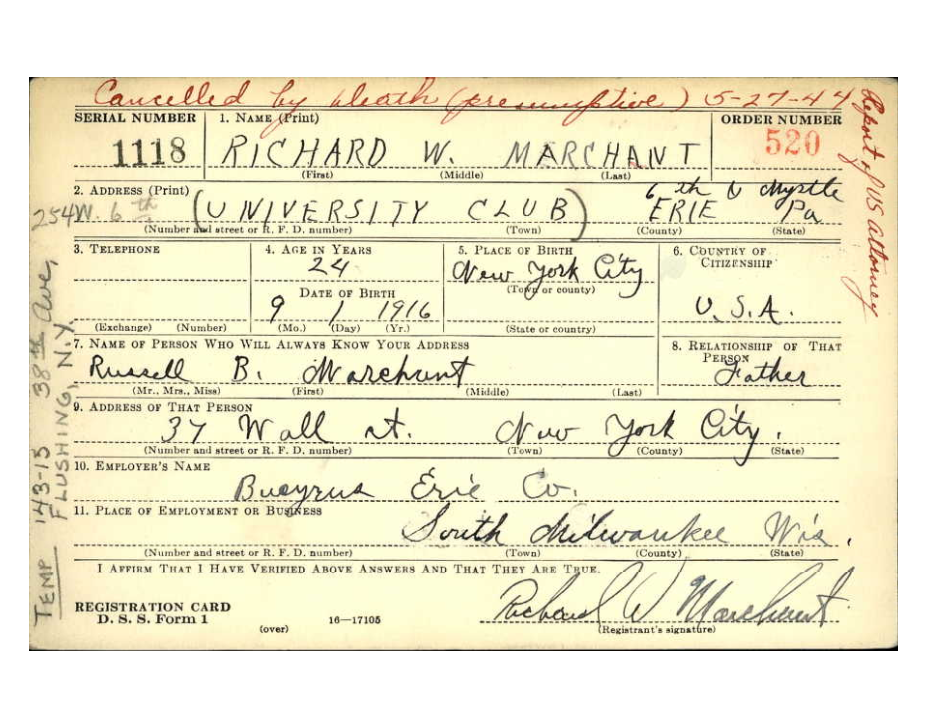 Cancelled by death (presumptive) 5-27-44
Report of US attorney
SERIAL NUMBER 1. NAME (Print) ORDER NUMBER
1118 RICHARD W. MARCHANT 520
(First) (Middle) (Last)
2. ADDRESS (Print) 6 th & Myrtle
254 W. 6 th (UNIVERSITY CLUB) ERIE Pa
(Number and street or R. F. D. number) (Town) (County) (State)
3. TELEPHONE 4. AGE IN YEARS 5. PLACE OF BIRTH 6. COUNTRY OF CITIZENSHIP
24 New York City
DATE OF BIRTH (Town or county)
9 1 1916 U.S.A.
(Exchange) (Number) (Mo.) (Day) (Yr.) (State or country)
7. NAME OF PERSON WHO WILL ALWAYS KNOW YOUR ADDRESS 8. RELATIONSHIP OF THAT PERSON
Russell B. Marchant Father
(Mr., Mrs., Miss) (First) (Middle) (Last)
9. ADDRESS OF THAT PERSON
37 Wall st. New York City.
(Number and street or R. F. D. number) (Town) (County) (State)
10. EMPLOYER'S NAME
Bucyrus Erie Co.
11. PLACE OF EMPLOYMENT OR BUSINESS
South Milwaukee Wis.
(Number and street or R. F. D. number) (Town) (County) (State)
I AFFIRM THAT I HAVE VERIFIED ABOVE ANSWERS AND THAT THEY ARE TRUE.
REGISTRATION CARD Richard W Marchant
D. S. S. Form 1 16—17105 (Registrant's signature)
(over)
TEMP 143-15 38th Ave,
FLUSHING, N.Y.